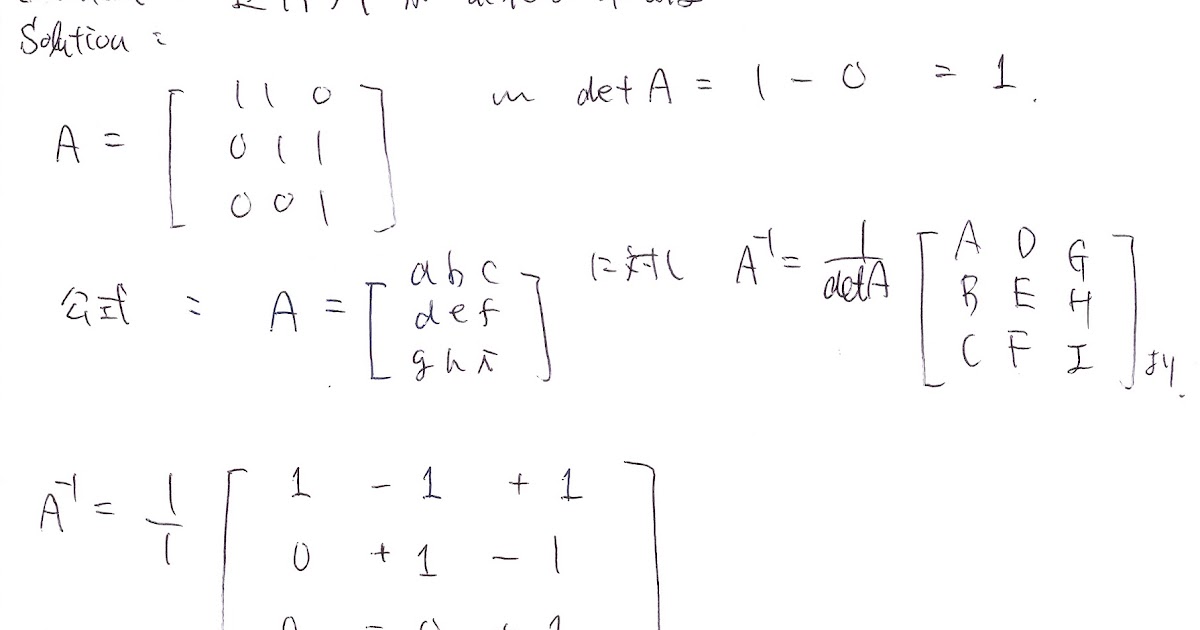 Solution :
A = [ 1 1 0
0 1 1
0 0 1 ] det A = 1 - 0 = 1.
公式 : A = [ a b c
d e f
g h i ] に対し A^-1 = 1/detA [ A D G
B E H
C F I ] より.
A^-1 = 1/1 [ 1 - 1 + 1
0 + 1 - 1
0 - 0 + 1